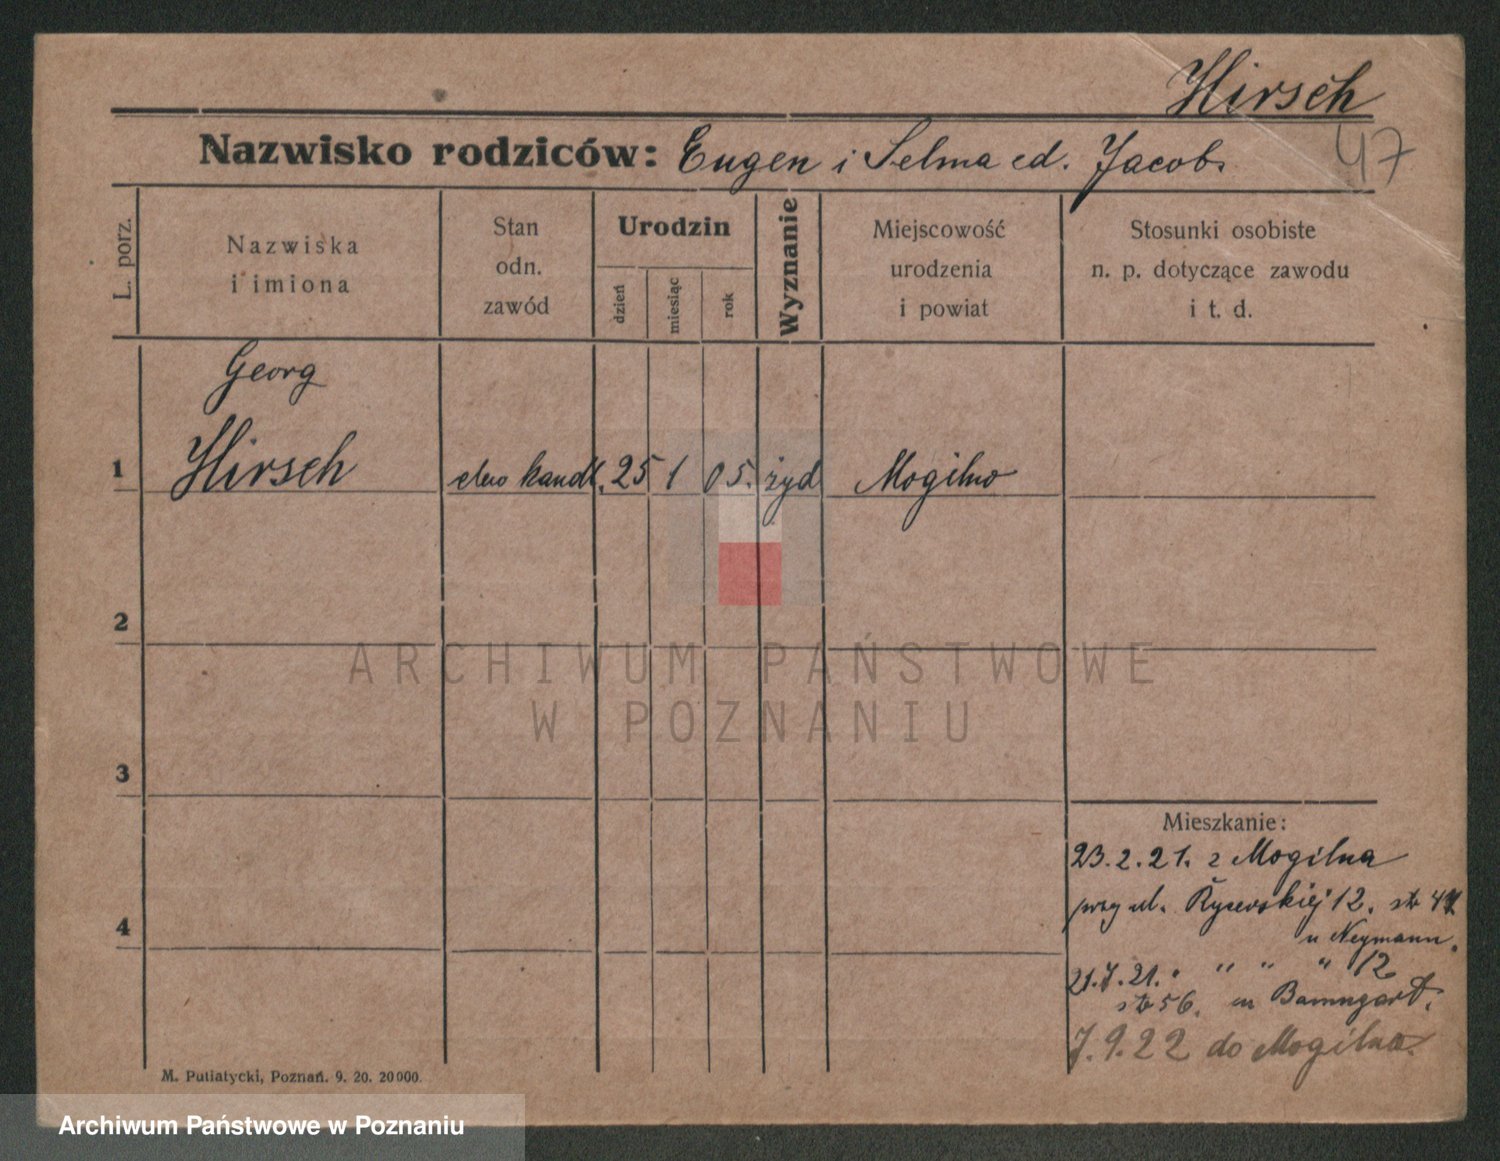 Hirsch
47
Nazwisko rodziców: Eugen i Selma cd. Jacob.
L. porz.
Nazwiska
i imiona
Stan
odn.
zawód
Urodzin
dzień
miesiąc
rok
Wyznanie
Miejscowość
urodzenia
i powiat
Stosunki osobiste
n. p. dotyczące zawodu
i t. d.
Georg
1 Hirsch elew handl. 25 1 05. żyd Mogilno
2
ARCHIWUM PAŃSTWOWE
W POZNANIU
3
Mieszkanie:
23.2.21. z Mogilna
przy ul. Rycerskiej 12.
4
u Neymann.
21.7.21. " " " 12
56. u Baumgart.
7.9.22 do Mogilna.
M. Putiatycki, Poznań. 9. 20. 20000.
Archiwum Państwowe w Poznaniu